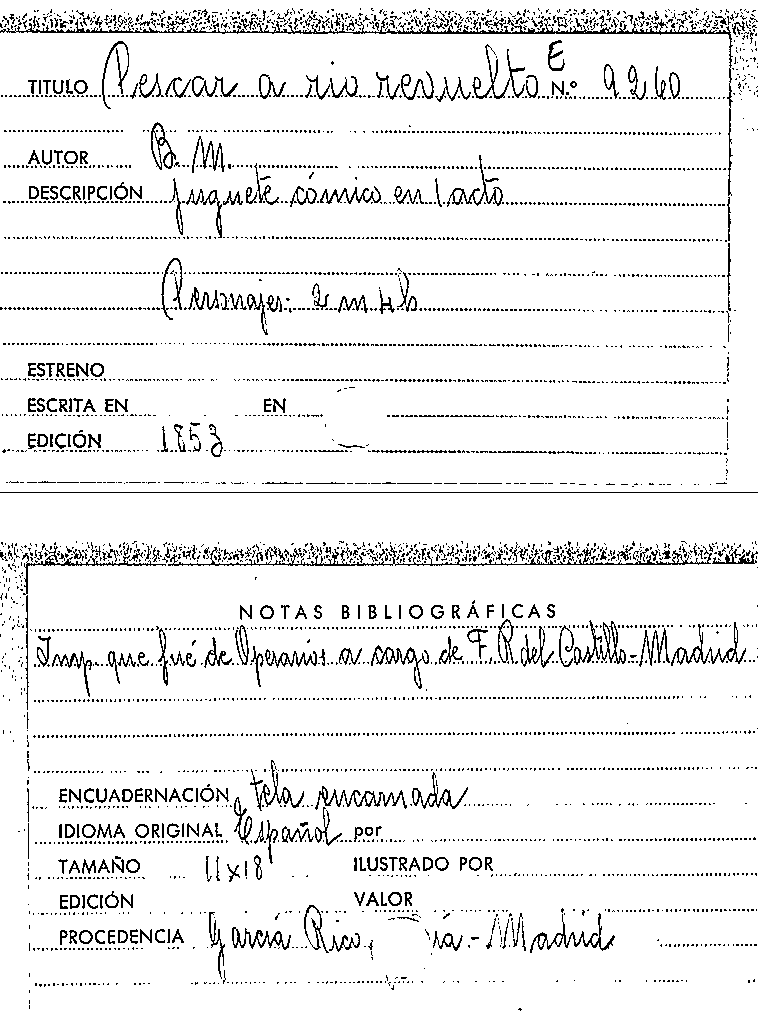 E
TITULO Pescar a rio revuelto N.º 9260
AUTOR B. M.
DESCRIPCIÓN juguete cómico en 1 acto
Personajes: 2 m 4 h
ESTRENO
ESCRITA EN EN
EDICIÓN 1853
NOTAS BIBLIOGRÁFICAS
Imp. que fué de Operarios a cargo de F. R. del Castillo - Madrid
ENCUADERNACIÓN, tela encarnada
IDIOMA ORIGINAL Español por
TAMAÑO 11x18 ILUSTRADO POR
EDICIÓN VALOR
PROCEDENCIA García Rico, - Madrid